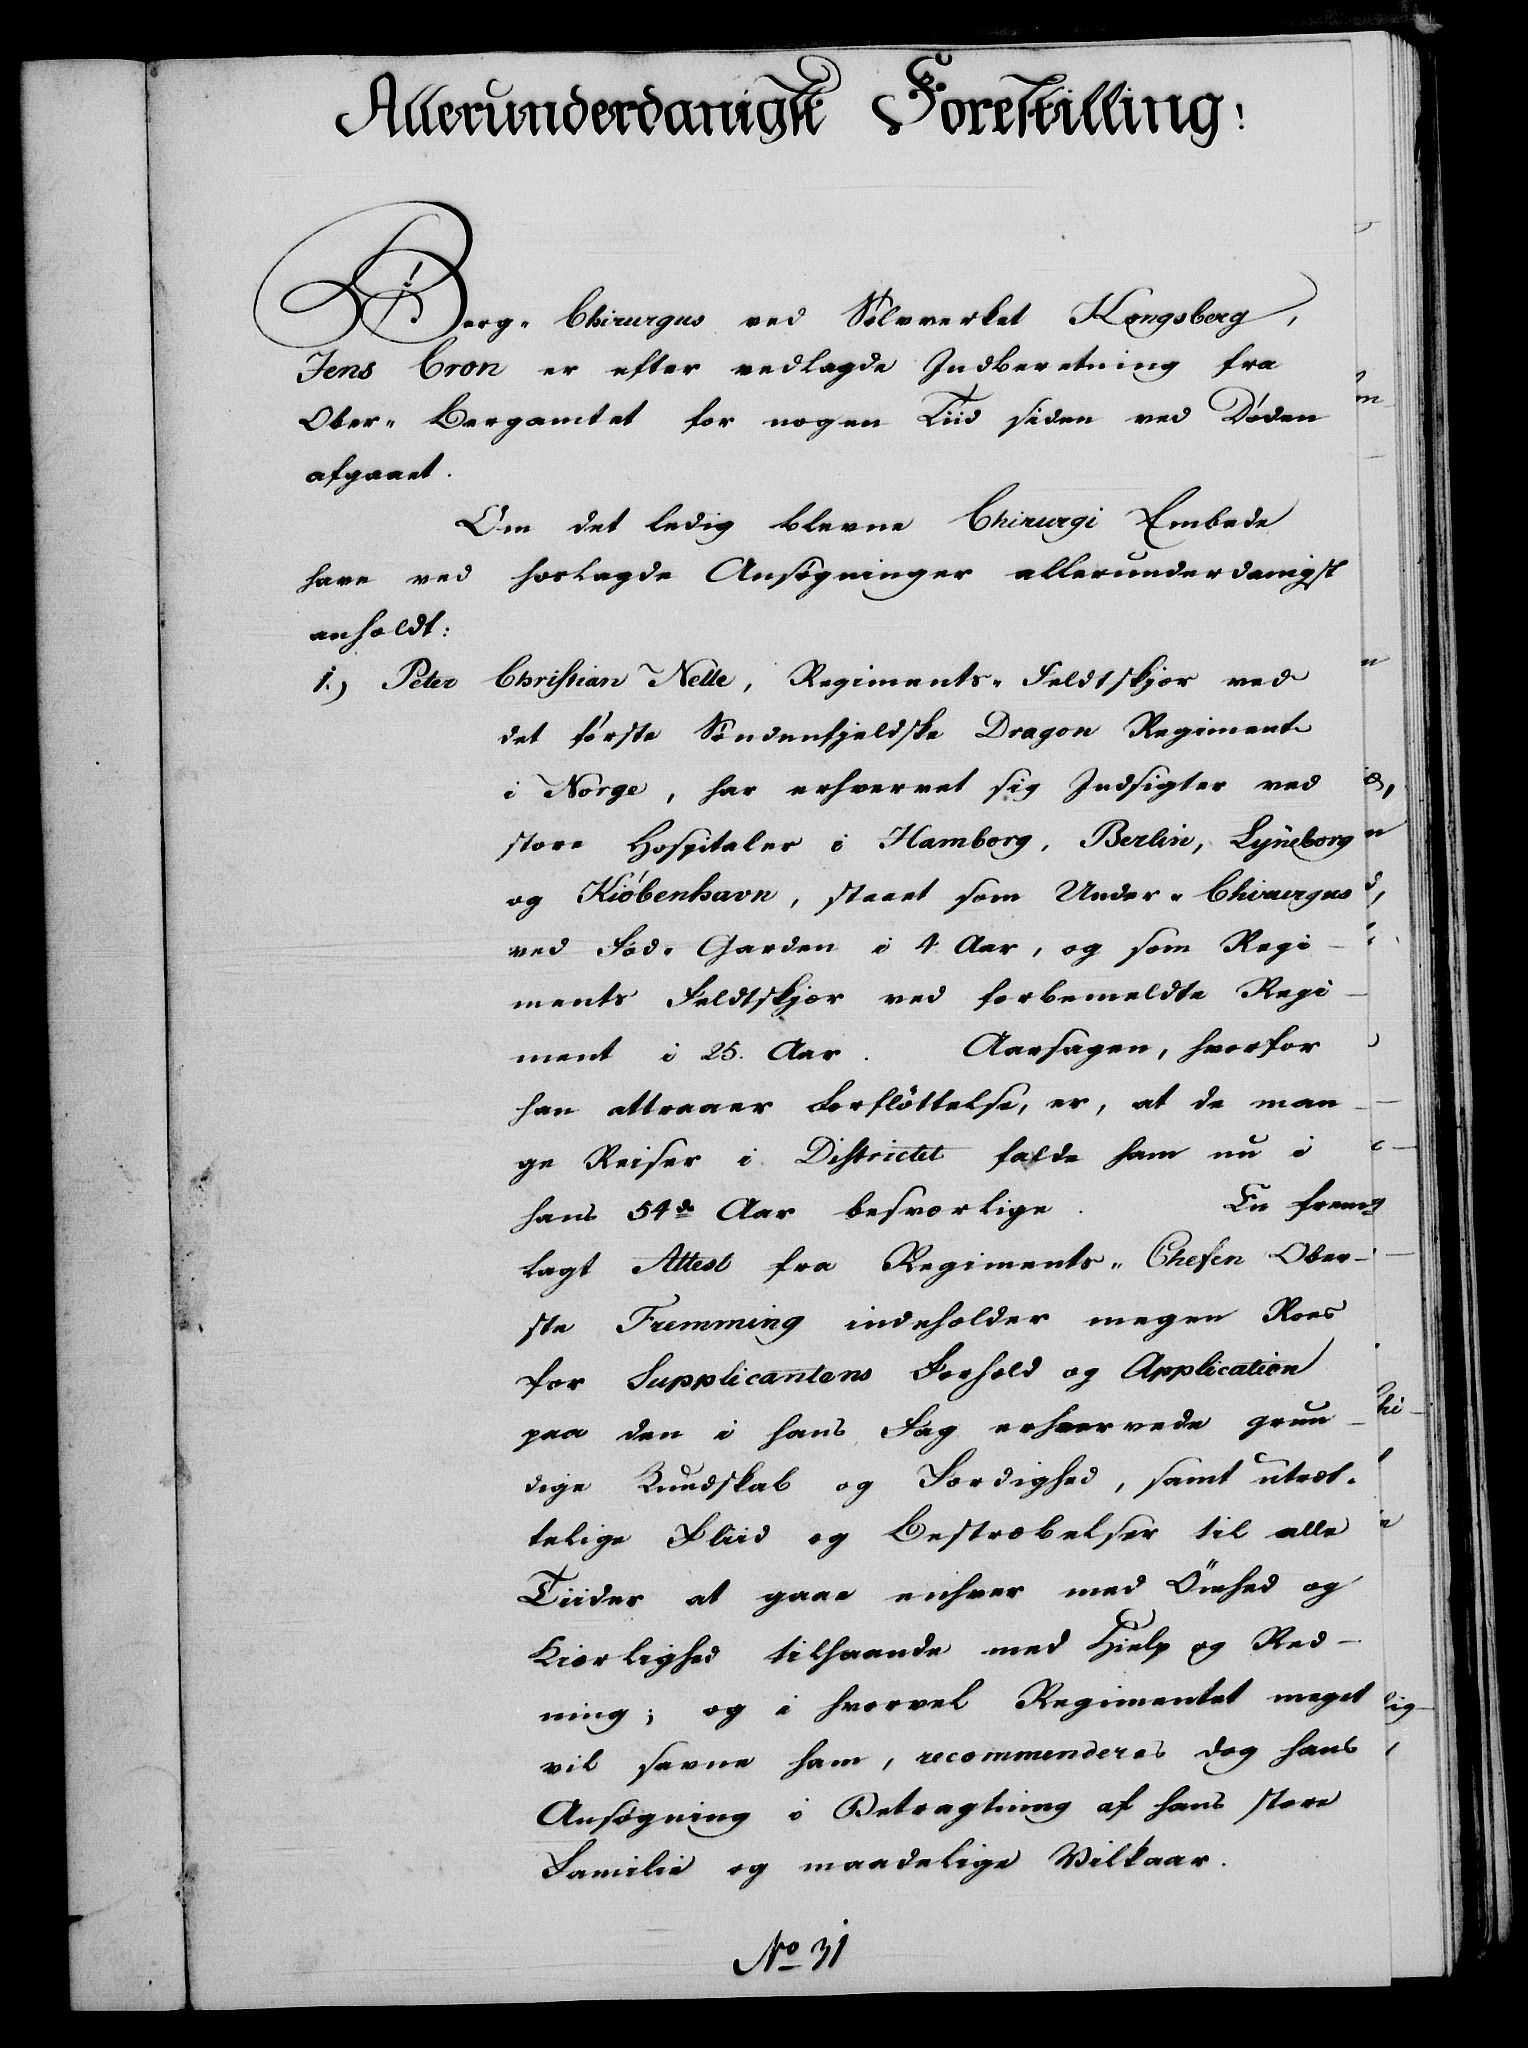 Allerunderdanigst Forestilling:
Berg- Chirurgus ved Sølvverket Kongsberg,
Jens Cron er efter vedlagde Indberetning fra
Ober- Bergamtet for nogen Tiid siden ved Døden
afgaaet.
Om det ledig blevne Chirurgi Embede
have ved hoslagde Ansøgninger allerunderdanigst
anholdt:
1.) Peter Christian Nelle, Regiments- Feldtskjær ved
det første Søndenfjeldske Dragon Regiment
i Norge, har erhvervet sig Indsigter ved
store Hospitaler i Hamborg, Berlin, Lyneborg
og Kiöbenhavn, staaet som Under- Chirurgus
ved Fod- Garden i 4 Aar, og som Regi-
ments Feldtskjær ved forbemeldte Regi-
ment i 25. Aar. Aarsagen, hvorfor
han attraaer Forflöttelse, er, at de man-
ge Reiser i Districtet falde ham nu i
hans 54de Aar besværlige. En frem-
lagt Attest fra Regiments- Chefen Ober-
ste Fremming indeholder megen Roes
for Supplicantens Forhold og Application
paa den i hans Fag erhvervede grun-
dige Kundskab og Færdighed, samt utræt-
telige Fliid og Bestræbelser til alle
Tiider at gaae enhver med Ömhed og
Kiærlighed tilhaande med Hielp og Red-
ning; og i hvorvel Regimentet meget
vil savne ham, recommenderes dog hans
Ansøgning i Betragtning af hans store
Familie og maadelige Vilkaar.
No 31